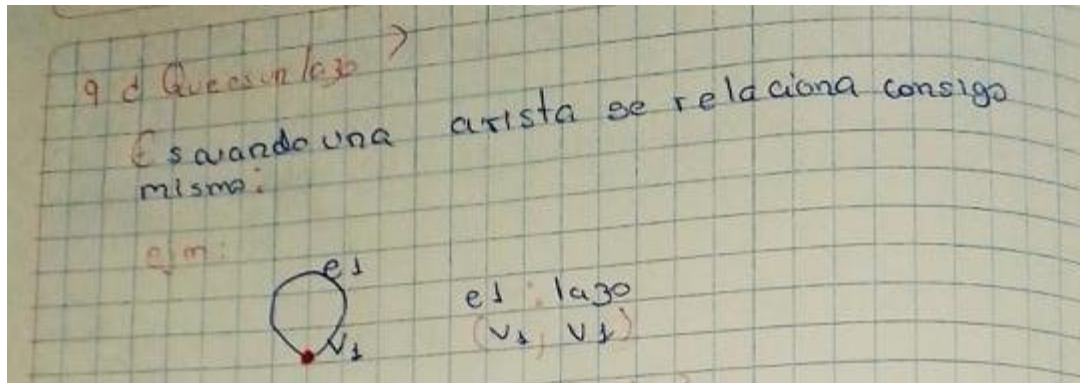 9 ¿ Que es un lazo ?
Es cuando una arista se relaciona consigo
mismo:
ejm:
e1
v1
e1 : lazo
(v1, v1)